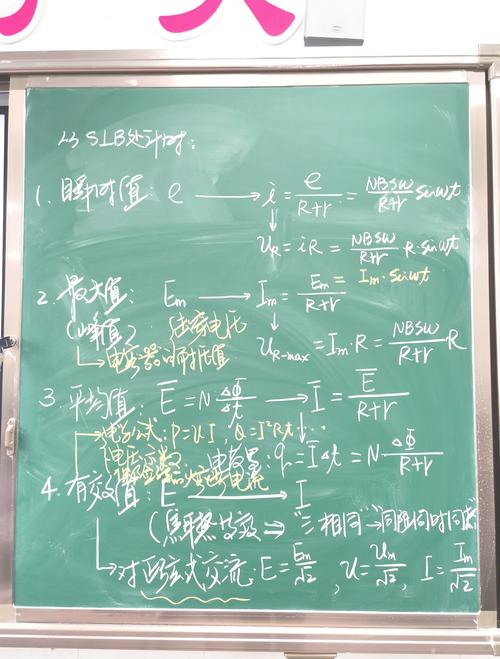 从S⊥B处计时:
1. 瞬时值: e → i = e/(R+r) = NBSω/(R+r) sinωt
↓
U_R = iR = NBSω/(R+r) R·sinωt
2. 最大值: E_m → I_m = E_m/(R+r) = I_m·sinωt
(峰值) 击穿电压
↓
→ 电容器的耐压值
U_R-max = I_m·R = NBSω/(R+r) R
3. 平均值: Ē = N ΔΦ/Δt → Ī = Ē/(R+r)
→ 电功公式: P=UI, Q=I²Rt…
电荷量: q = ĪΔt = N ΔΦ/(R+r)
熔断电流
4. 有效值: E → I
(焦耳热 ⇒ "三相同" → 同阻同时同
→ 对正弦式交流: E = E_m/√2, U = U_m/√2, I = I_m/√2